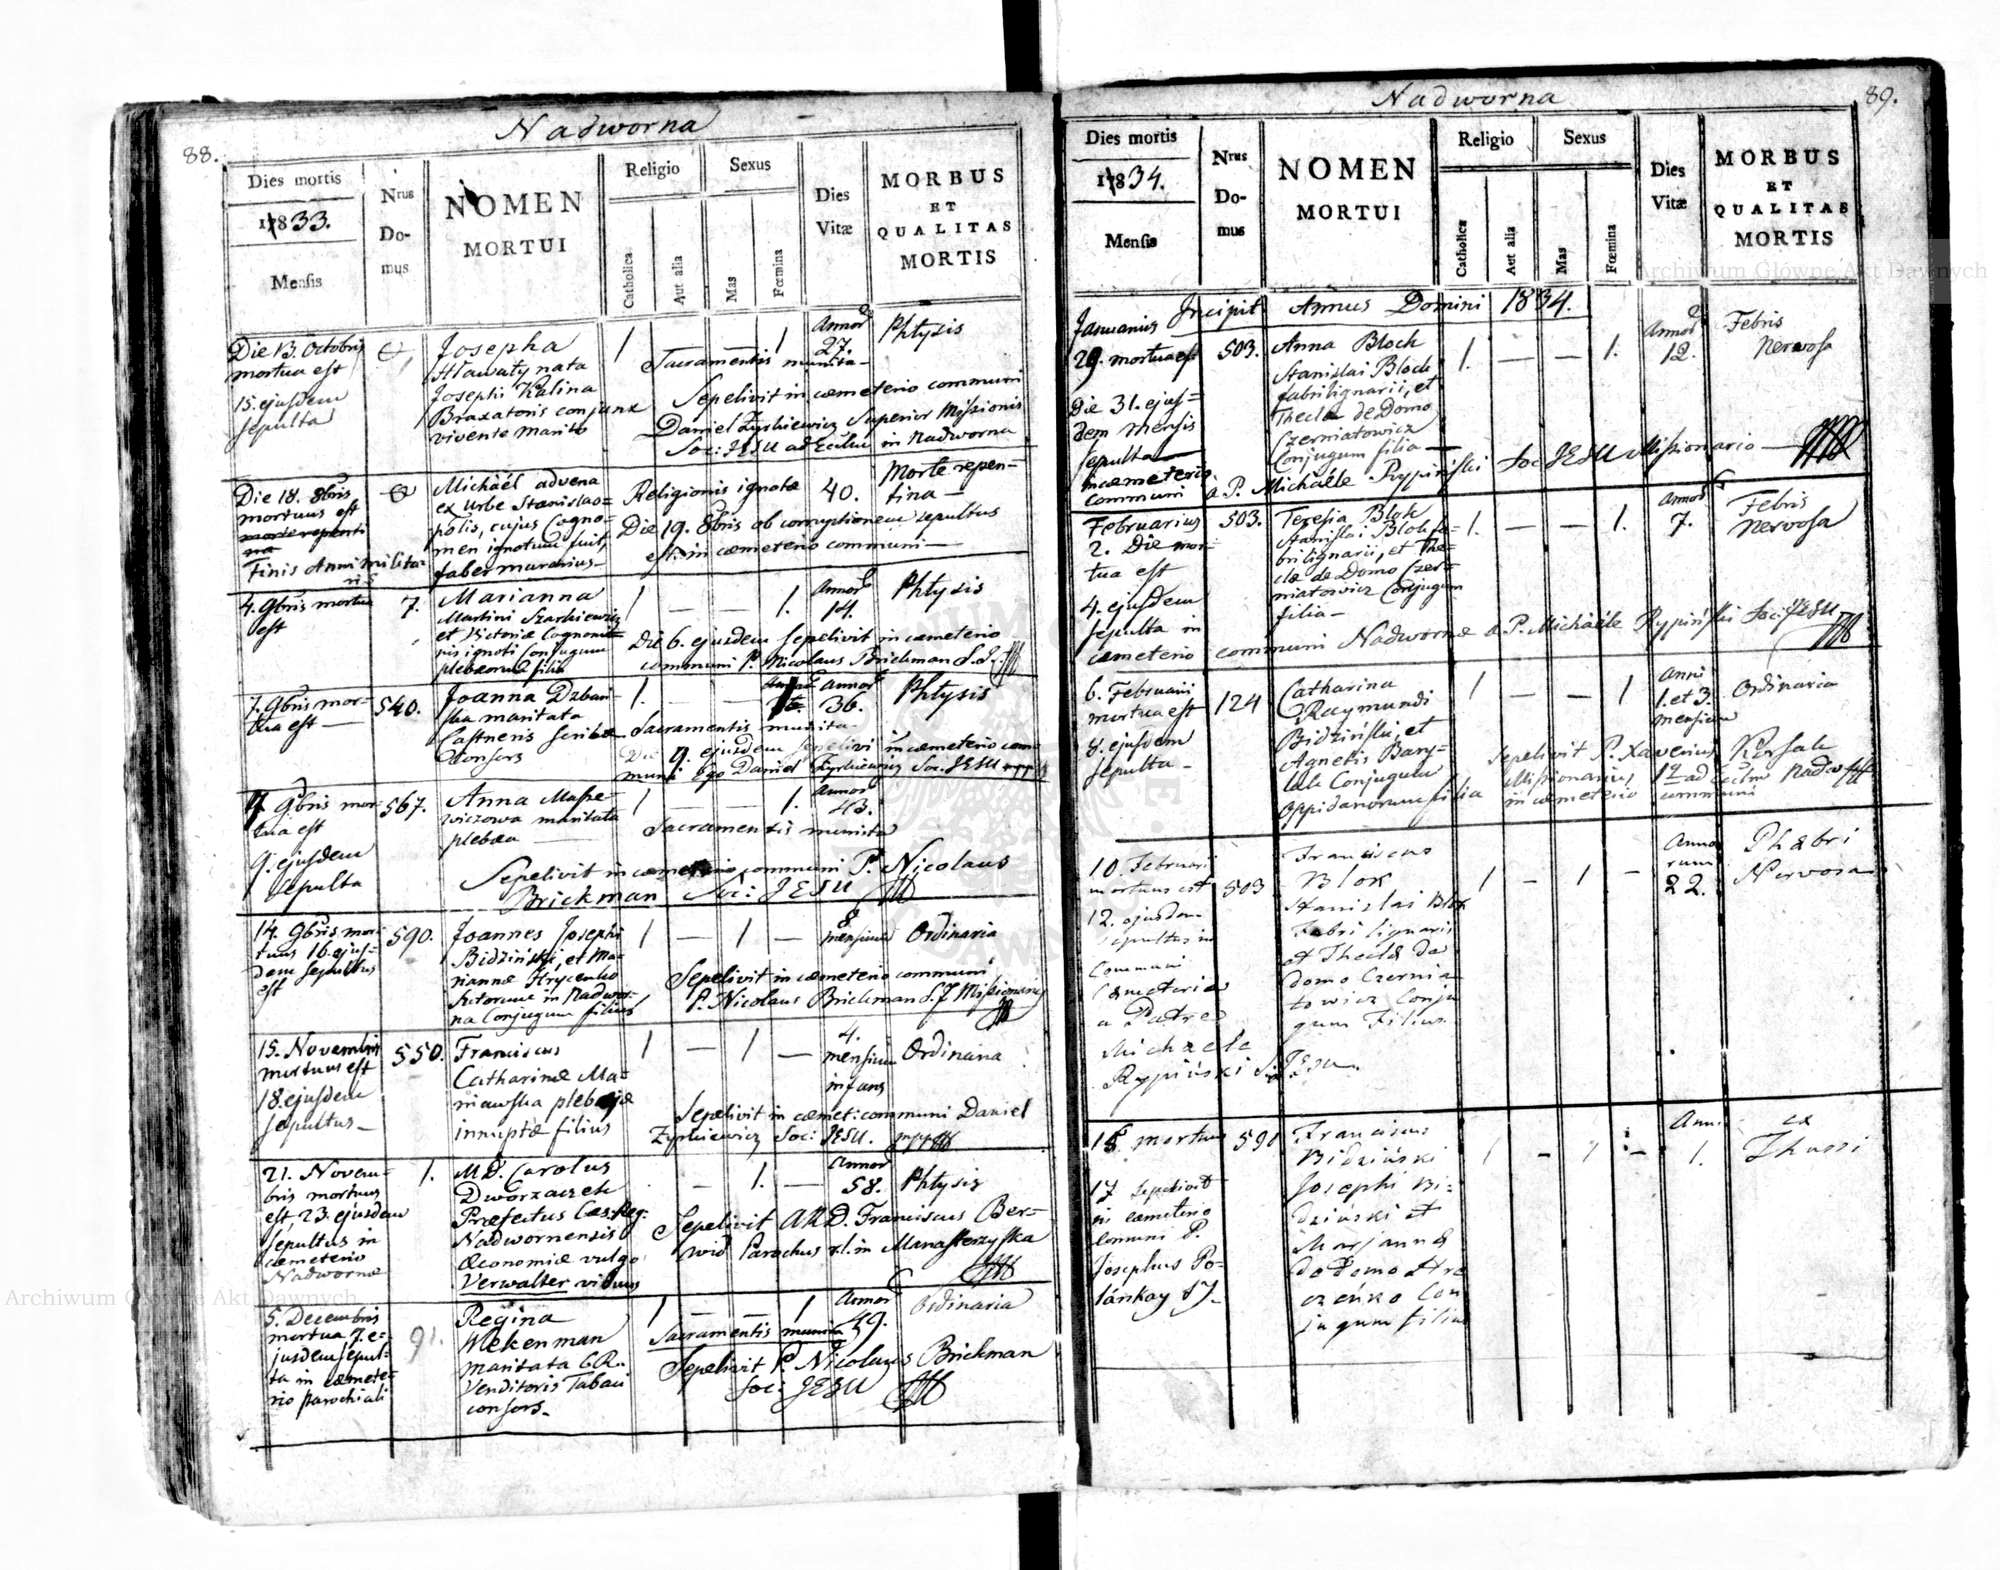 Nadworna
88.
Dies mortis
1833.
Mensis
Nrus
Do-
mus
NOMEN
MORTUI
Religio
Catholica
Aut alia
Sexus
Mas
Fœmina
Dies
Vitæ
MORBUS
ET
QUALITAS
MORTIS
Die 13. Octobris
mortua est
15. ejusdem
sepulta
Josepha
Hławaty nata
Josephi Kalina
Braxatoris conjunx
vivente marito
1 — — 1.
Annor
27.
Phtysis
Sacramentis munita
Sepelivit in cœmeterio communi
Daniel Zyrkiewicz Superior Missionis
Soc: JESU ad Eccltm in Nadworna
Die 18. 8bris
mortuus est
morte repenti
na
Finis Anni militar
ris
Michäel advena
ex Urbe Stanislao=
polis, cujus Cogno=
men ignotum fuit,
faber murarius
Religionis ignotæ
40.
Morte repen-
tina —
Die 19. 8bris ob corruptionem sepultus
est in cœmeterio communi —
4. 9bris mortua
est
7.
Marianna
Martini Szarkiewicz
et Victoriæ Cognomi=
nis ignoti Conjugum
plebeorum filia
1 — — 1.
Annor
14.
Phtysis
Die 6. ejusdem sepelivit in cœmeterio
communi P. Nicolaus Brickman S.J.
7. 9bris mor-
tua est —
540.
Joanna Dzban-
ska maritata
Castneris scribæ
Consors
1. — —
Annor
36.
Phtysis
Sacramentis munita
Die 9. ejusdem sepelivi in cœmeterio com
muni Ego Daniel Zyrkiewicz Soc. JESU mpp
7. 9bris mor-
tua est
9. ejusdem
sepulta
567.
Anna Masze
wiczowa maritata
plebea
1 — — 1.
Annor
43.
Sacramentis munita
Sepelivit in cœmeterio communi P. Nicolaus
Brickman Soc: JESU
14. 9bris mor-
tuus 16. ejus-
dem sepultus
est
590.
Joannes Josephi
Bidziński, et Ma-
riannæ Hrycenko
sutorum in Nadwor-
na Conjugum filius
1 — 1 —
8
mensium
Ordinaria
Sepelivit in cœmeterio communi
P. Nicolaus Brickman S.J Missionarius
15. Novembris
mortuus est
18. ejusdem
sepultus —
550.
Franciscus
Catharinæ Ma-
niawska plebejæ
innuptæ filius
1 — 1 —
4.
mensium
infans
Ordinaria
Sepelivit in cœmet: communi Daniel
Zyrkiewicz Soc: JESU. mpp
21. Novem-
bris mortuus
est, 23. ejusdem
sepultus in
cœmeterio
Nadwornæ
1.
M.D. Carolus
Dworzaczek
Præfectus Cæs. Reg.
Nadwornensis
Œconomiæ vulgo
Verwalter viduus
— 1. —
Annor
58.
Phtysis
Sepelivit ARD. Franciscus Ber-
wid Parochus r.l. in Manasterzyska
5. Decembris
mortua 7. e-
jusdem sepul-
ta in cœmete-
rio parochiali
91.
Regina
Wekenman
maritata C.R.
Venditoris Tabaci
consors.
1 — — 1
Annor
49.
Ordinaria
Sacramentis munita
Sepelivit P. Nicolaus Brickman
Soc: JESU
Nadworna
89.
Dies mortis
1834.
Mensis
Nrus
Do-
mus
NOMEN
MORTUI
Religio
Catholica
Aut alia
Sexus
Mas
Fœmina
Dies
Vitæ
MORBUS
ET
QUALITAS
MORTIS
Incipit Annus Domini 1834.
Januarius
29. mortua est
Die 31. ejus=
dem Mensis
sepulta
in cœmeterio
communi
503.
Anna Bloch
Stanislai Bloch
fabrilignarii, et
Theclæ de Domo
Czerniatowicz
Conjugum filia —
1. — — 1.
Annor
12.
Febris
Nervosa
a P. Michäele Rypiński Soc JESU Missionario —
Februarius
2. Die mor-
tua est
4. ejusdem
sepulta in
cœmeterio
503.
Teresia Blok
Stanislai Blok fa=
brilignarii, et The=
clæ de Domo Czer-
niatowicz Conjugum
filia —
1. — — 1.
Annor
7.
Febris
Nervosa
communi Nadwornæ a P. Michäele Rypiński Soc: JESU
6. Februarii
mortua est
8. ejusdem
sepulta —
124
Catharina
Raymundi
Bidziński, et
Agnetis Bary-
lak Conjugum
oppidanorum filia
1 — — 1
anni
1. et 3.
mensium
Ordinaria
Sepelivit P. Xaverius Korsak
Missionarius ad Eccltm Nadw
in cœmeterio communi
10. Februari
mortuus est
12. ejusdem
sepultus in
Communi
Cæmeterio
a Patre
Michaele
Rypiński S. Jesu.
503
Franciscus
Blok
Stanislai Blok
Fabri lignaris
et Theclæ de
domo Czernia
towicz Conju
gum Filius.
1 — 1 —
Anno
rum
22.
Phæbri
Nervosa
15. mortuus
17 sepelivit
in cœmeterio
communi P.
Josephus Po-
lánkay SJ.
591
Franciscus
Bidziński
Josephi Bi-
dziński et
Marjannæ
de Domo Hre
czeńko Con
jugum filius
1 - 1 -
Ann.
1.
ex
Thussi
Archiwum Główne Akt Dawnych
Archiwum Główne Akt Dawnych